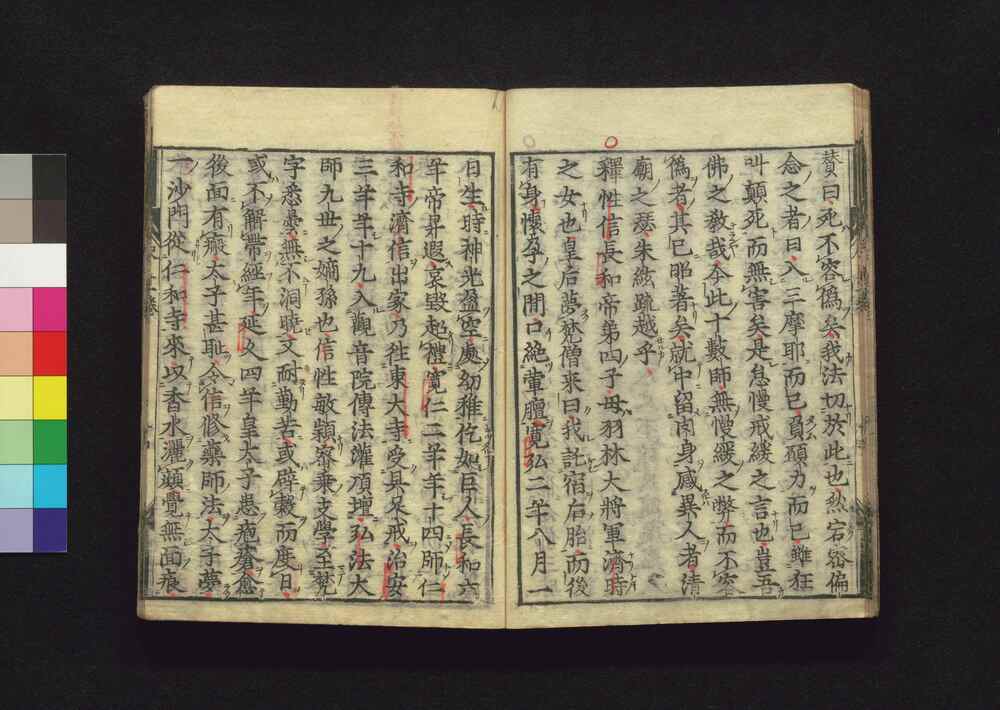 賛曰死不容僞矣我法切於此也然宕密偏
念之者曰入三摩耶而已負碩力而已雖狂
叫顛死而無害矣是怠慢戒緩之言也豈吾
佛之敎哉今此十數師無慢緩之弊而不容
僞者其已昭著矣就中留肉身感異人者清
廟之瑟朱絃疏越乎
釋性信長和帝第四子母羽林大將軍濟時
之女也皇后夢梵僧來曰我託宿后胎而後
有身懷孕之間口絶葷膻寛弘二年八月一
日生時神光盈空處幼稚仡如巨人長和六
年帝昇遐哀毀起禮寛仁二年年十四師仁
和寺濟信出家乃往東大寺受具足戒治安
三年年十九入觀音院傳法灌頂壇弘法大
師九世之嫡孫也信性敏頴密乘支學至梵
字悉曇無不洞曉又耐勤苦或辟穀而度日
或不解帶經年延久四年皇太子患疱瘡愈
後面有瘢太子甚耻令信修藥師法太子夢
一沙門從仁和寺來以香水灑顔覺無面痕